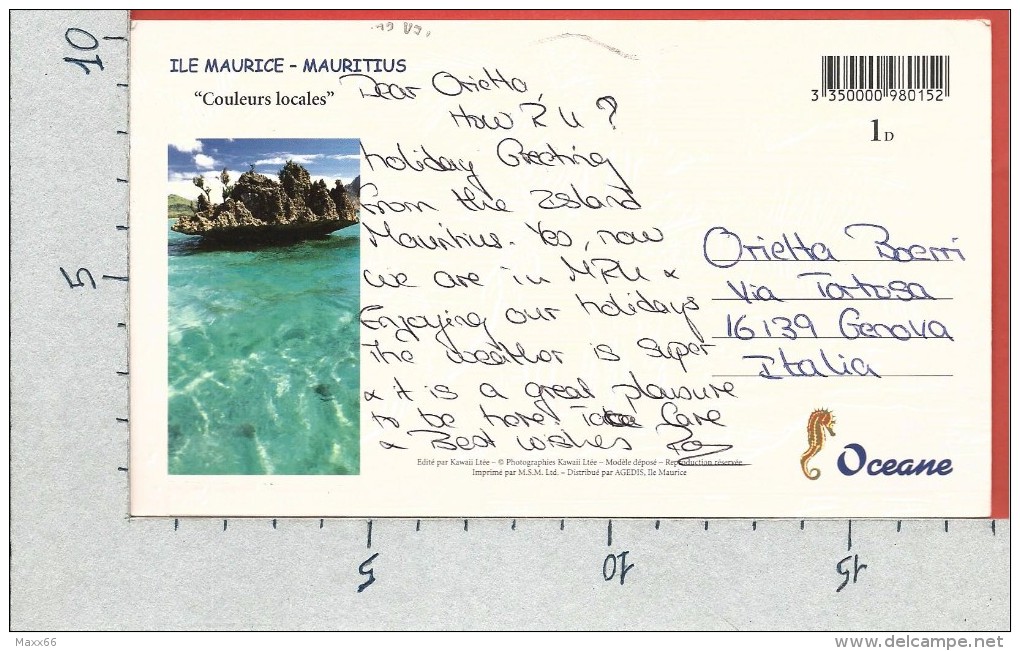 ILE MAURICE – MAURITIUS
"Couleurs locales"
Dear Orietta,
How R U ?
Holiday Greeting
from the Island
Mauritius. Yes, now
we are in MRU &
Enjoying our holidays
The weather is super
& it is a great pleasure
to be here! Take Care
& Best wishes
3 350000 980152
1D
Orietta Boerri
Via Tortosa
16139 Genova
Italia
Oceane
Edité par Kawaii Ltée – © Photographies Kawaii Ltée – Modèle déposé – Reproduction réservée.
Imprimé par M.S.M. Ltd. – Distribué par AGEDIS, Ile Maurice
10
5
5
10
15
Maxx66
www.delcampe.net